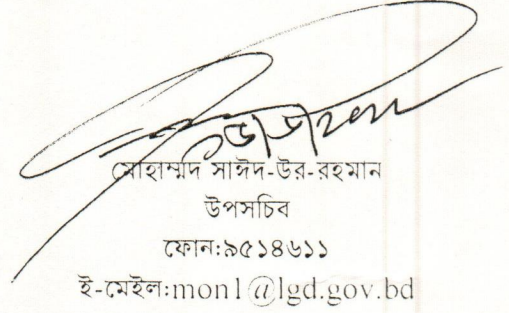 মোহাম্মদ সাঈদ-উর-রহমান
উপসচিব
ফোন:৯৫১৪৬১১
ই-মেইল:mon1@lgd.gov.bd